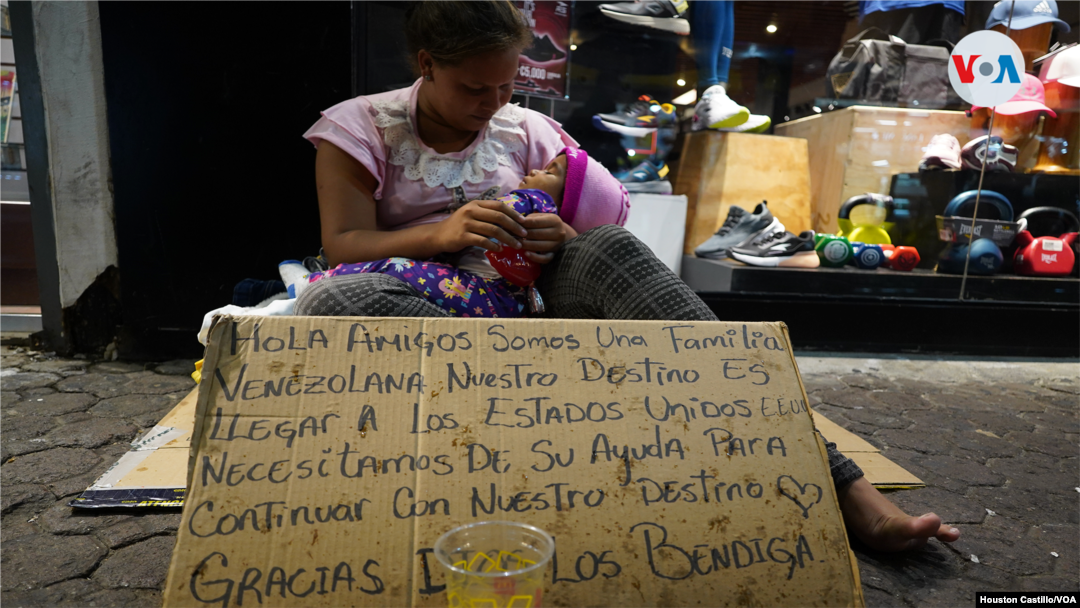 VOA
₡5,000
HOLA AMIGOS SOMOS UNA FAMILIA
VENEZOLANA NUESTRO DESTINO ES
LLEGAR A LOS ESTADOS UNIDOS EE.UU
NECESITAMOS DE SU AYUDA PARA
CONTINUAR CON NUESTRO DESTINO
GRACIAS LOS BENDIGA.
EVERLAST
Houston Castillo/VOA